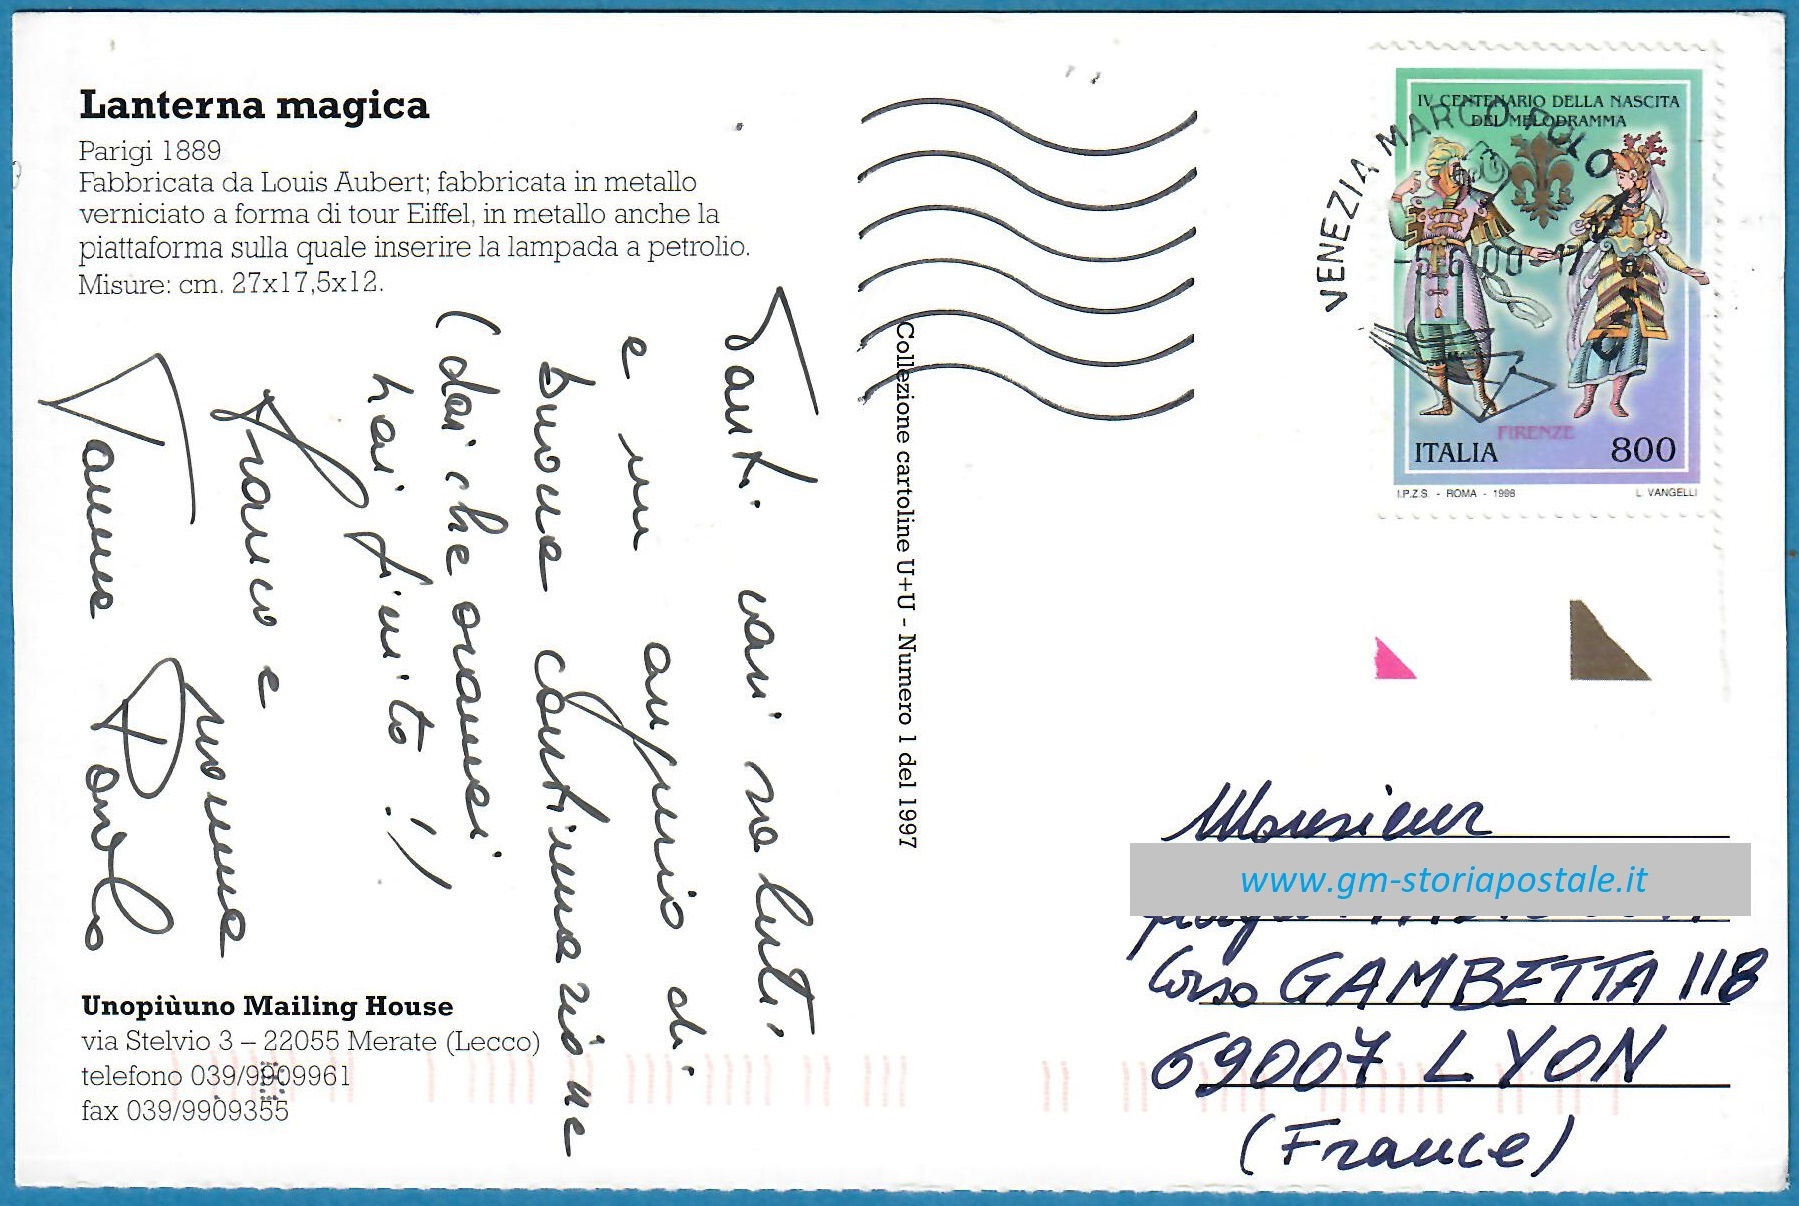 Lanterna magica
Parigi 1889
Fabbricata da Louis Aubert; fabbricata in metallo
verniciato a forma di tour Eiffel, in metallo anche la
piattaforma sulla quale inserire la lampada a petrolio.
Misure: cm. 27x17,5x12.
Tanti cari saluti
e un augurio di
buona continuazione
(dai che oramai
hai finito!)
Franco e
Ivonne
Vanna Paolo
Unopiùuno Mailing House
via Stelvio 3 – 22055 Merate (Lecco)
telefono 039/9909961
fax 039/9909355
Collezione cartoline U+U - Numero 1 del 1997
VENEZIA MARCO POLO
-5.6.00-17
IV CENTENARIO DELLA NASCITA
DEL MELODRAMMA
FIRENZE
ITALIA 800
I.P.Z.S. - ROMA - 1998 L. VANGELLI
Monsieur
www.gm-storiapostale.it
Corso GAMBETTA 118
69007 LYON
(France)